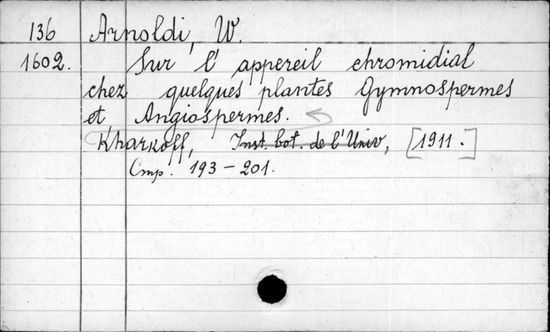 136 Arnoldi, W.
1602. Sur l' appereil chromidial
chez quelques plantes Gymnospermes
et Angiospermes.
Kharkoff, Inst. bot. de l'Univ, [1911.]
Cmp. 193-201.